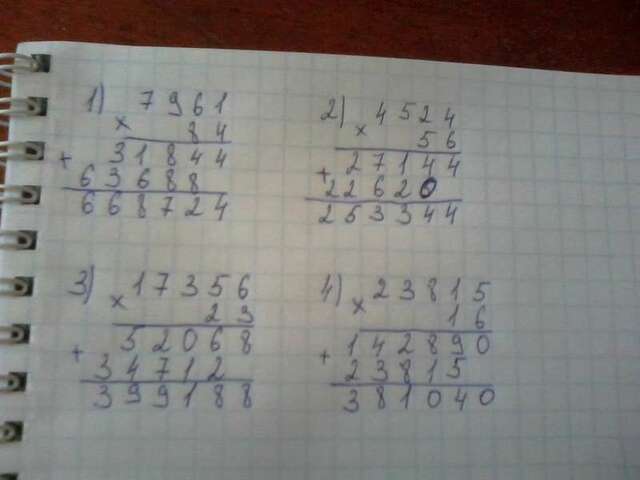 1) 7961
× 84
+ 31844
63688
668724
2) 4524
× 56
+ 27144
22620
253344
3) 17356
× 23
+ 52068
34712
399188
4) 23815
× 16
+ 142890
23815
381040